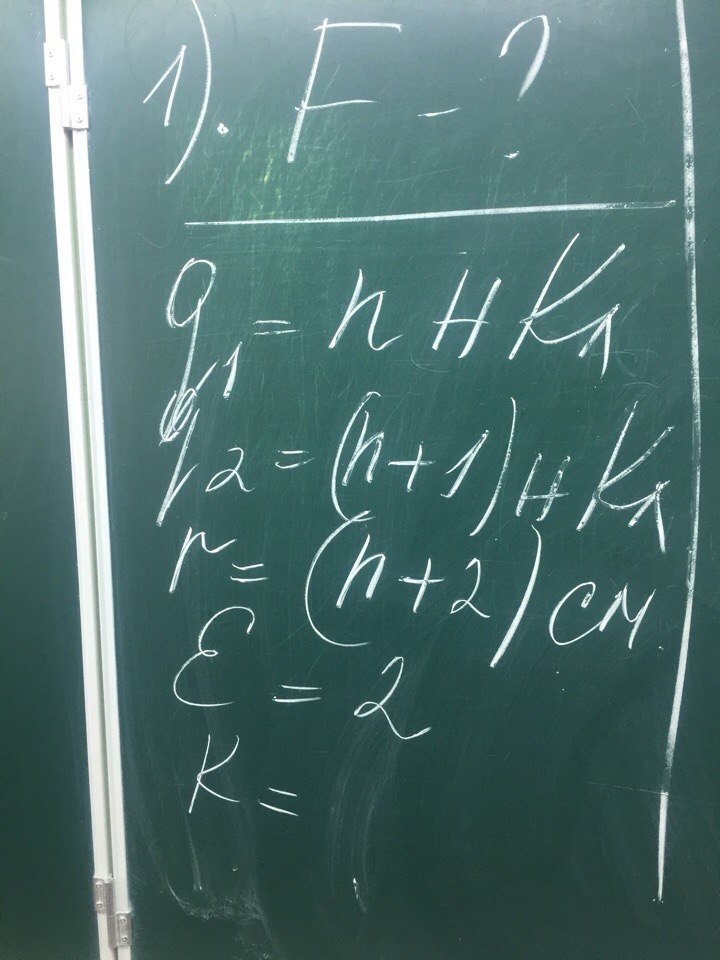 1). F - ?
q1 = n нКл
q2 = (n+1) нКл
r = (n+2) см
ε = 2
K =